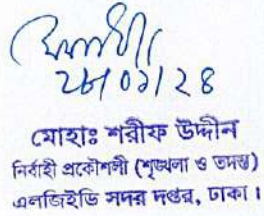 ২৮/০১/২৪
মোহাঃ শরীফ উদ্দীন
নির্বাহী প্রকৌশলী (শৃঙ্খলা ও তদন্ত)
এলজিইডি সদর দপ্তর, ঢাকা।